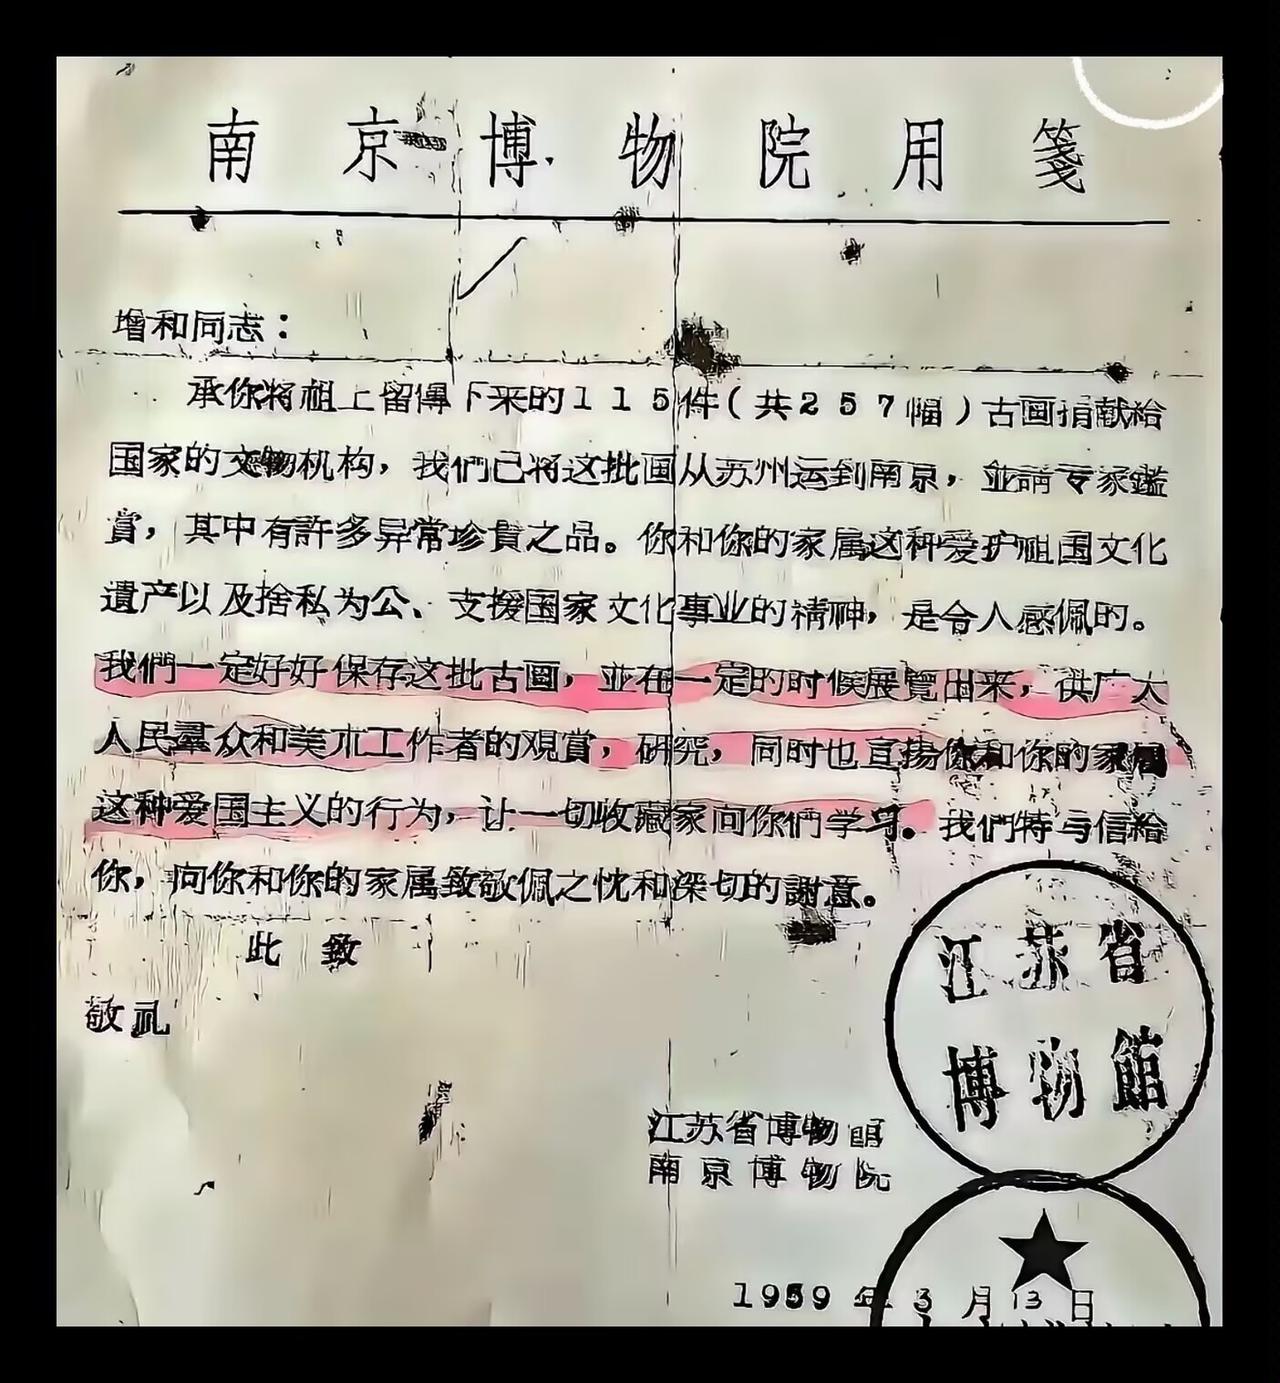 南京博物院用箋
增和同志：
承你將祖上留傳下来的115件(共257幅)古画捐献給
国家的文物机构，我們已将这批画从苏州运到南京，並請专家鑑
賞，其中有許多异常珍貴之品。你和你的家属这种爱护祖国文化
遺产以及捨私为公、支援国家文化事业的精神，是令人感佩的。
我們一定好好保存这批古画，並在一定的时候展覽出来，供广大
人民羣众和美朮工作者的观賞，研究，同时也宣揚你和你的家属
这种爱国主义的行为，让一切收藏家向你們学习。我們特与信給
你，向你和你的家属致敬佩之忱和深切的謝意。
此致
敬礼
江苏省
博物館
江苏省博物館
南京博物院
1959年3月13日